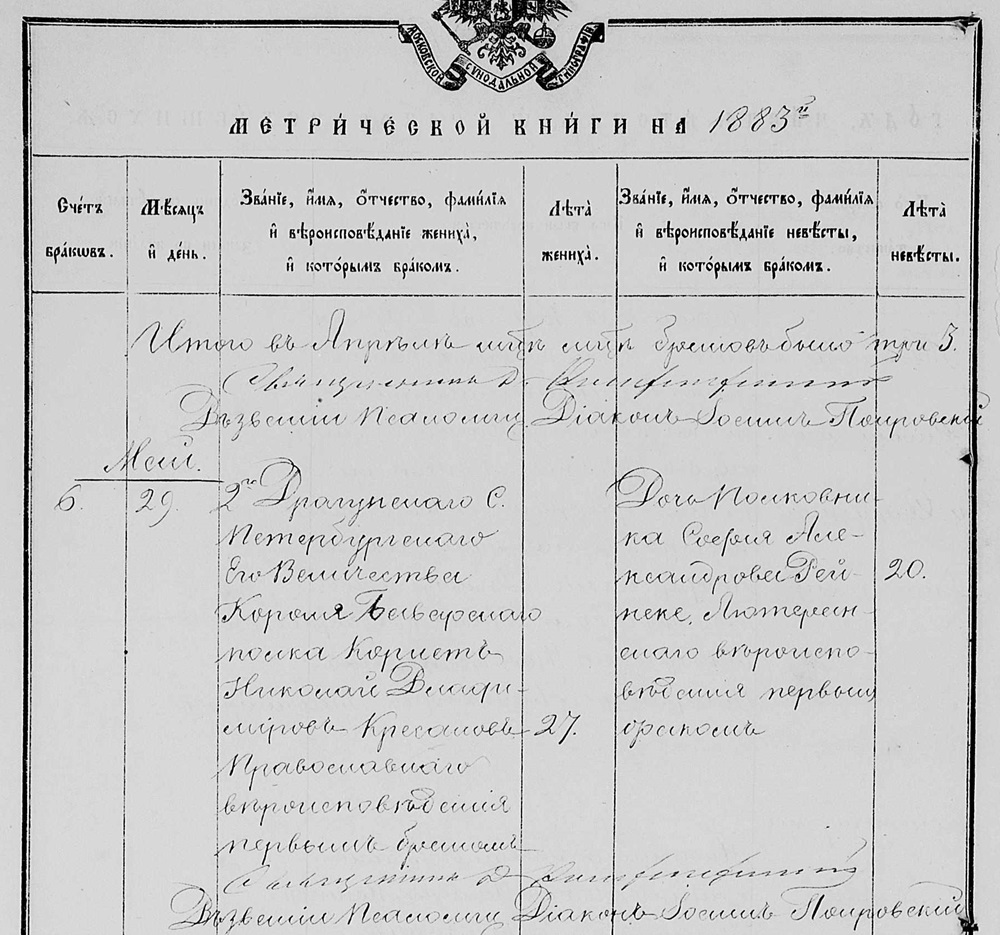 МОСКОВСКОЙ СѴНОДАЛЬНОЙ ТИПОГРАФІИ
МЕТРИ́ЧЕСКОЙ КНИ́ГИ НА 1883й
Сче́тъ бра́кѡвъ.
Мѣ́сяцъ и́ де́нь.
Зва́ніе, и́мя, о́тчество, фами́лія и́ вѣроисповѣ́даніе жениха̀, и́ кото́рымъ бра́комъ.
Лѣта̀ жениха̀.
Зва́ніе, и́мя, о́тчество, фами́лія и́ вѣроисповѣ́даніе невѣ́сты, и́ кото́рымъ бра́комъ.
Лѣта̀ невѣ́сты.
Итого въ Апрѣлѣ мцѣ браковъ было три 3.
Священникъ
Псаломщ. Діаконъ Іосифъ Покровскій
Май.
6. 29.
2го Драгунскаго С.
Петербургскаго
Его Величества
Короля Баварскаго
полка Корнетъ
Николай Влади-
міровъ
27.
Православнаго
вѣроисповѣданія
первымъ бракомъ
Дочь Полковни-
ка Софія Але-
ксандрова Рей-
неке, Лютеран-
скаго вѣроиспо-
вѣданія первымъ
бракомъ
20.
Священникъ
Псаломщ. Діаконъ Іосифъ Покровскій